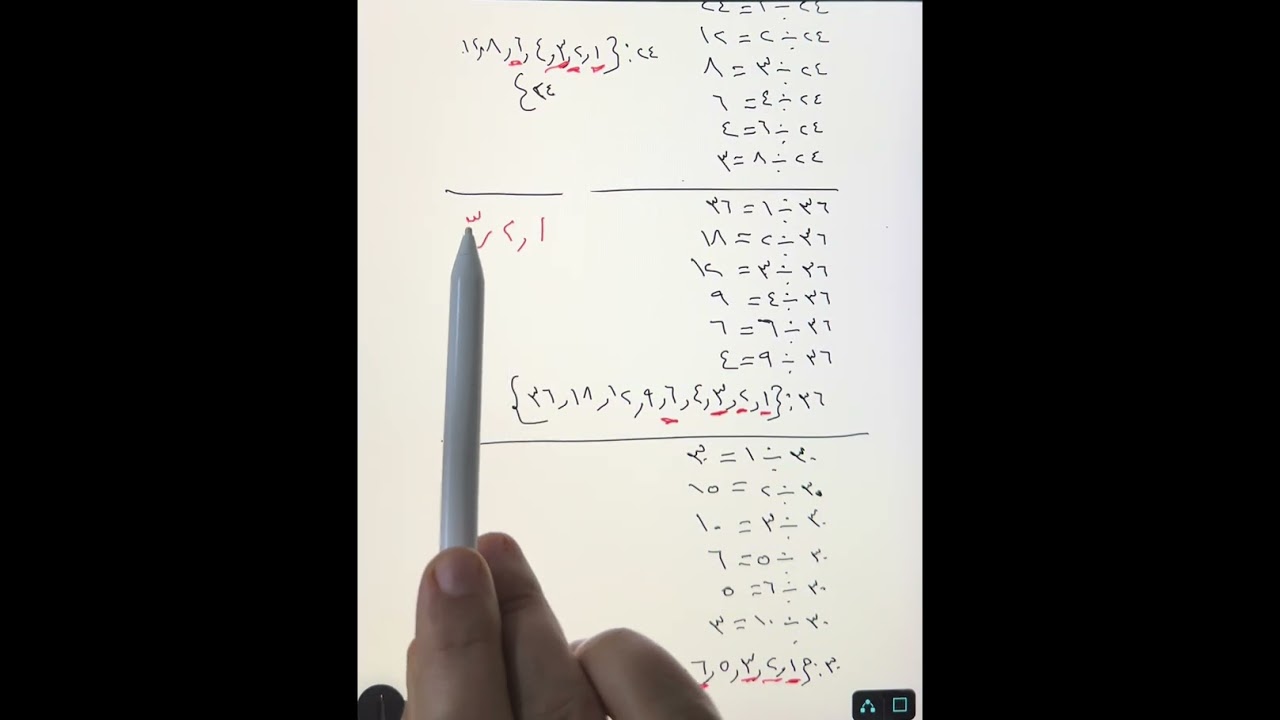 ٢٤ ÷ ١ = ٢٤
٢٤ ÷ ٢ = ١٢
٢٤ ÷ ٣ = ٨
٢٤ ÷ ٤ = ٦
٢٤ ÷ ٦ = ٤
٢٤ ÷ ٨ = ٣
٢٤ : {١ , ٢ , ٣ , ٤ , ٦ , ٨ , ١٢
٢٤}
٣٦ ÷ ١ = ٣٦
٣٦ ÷ ٢ = ١٨
٣٦ ÷ ٣ = ١٢
٣٦ ÷ ٤ = ٩
٣٦ ÷ ٦ = ٦
٣٦ ÷ ٩ = ٤
٣٦ : {١ , ٢ , ٣ , ٤ , ٦ , ٩ , ١٢ , ١٨ , ٣٦}
١ , ٢ , ٣
٣٠ ÷ ١ = ٣٠
٣٠ ÷ ٢ = ١٥
٣٠ ÷ ٣ = ١٠
٣٠ ÷ ٥ = ٦
٣٠ ÷ ٦ = ٥
٣٠ ÷ ١٠ = ٣
٣٠ : {١ , ٢ , ٣ , ٥ , ٦